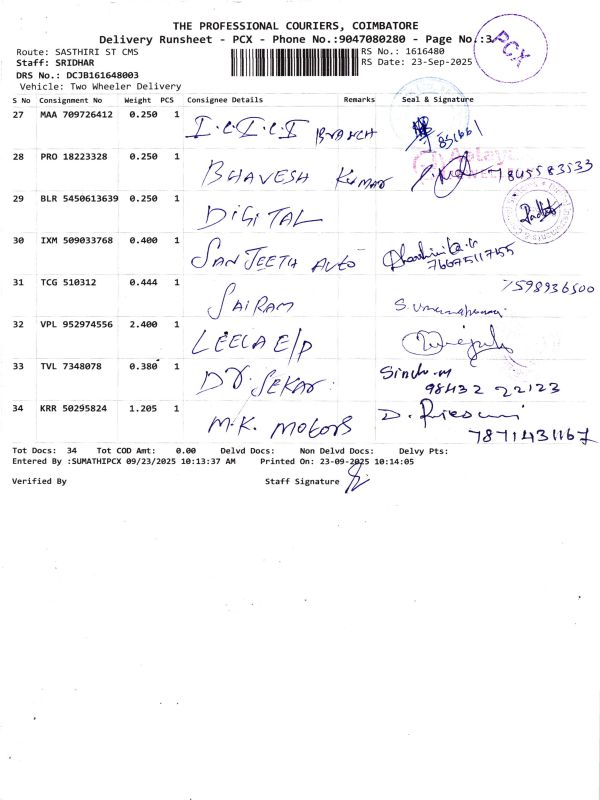 THE PROFESSIONAL COURIERS, COIMBATORE
Delivery Runsheet - PCX - Phone No.:9047080280 - Page No.:3
PCX
Route: SASTHIRI ST CMS
RS No.: 1616480
Staff: SRIDHAR
RS Date: 23-Sep-2025
DRS No.: DCJB161648003
Vehicle: Two Wheeler Delivery
S No Consignment No Weight PCS Consignee Details Remarks Seal & Signature
27 MAA 709726412 0.250 1 I.C.I.C.I BRANCH 851661
28 PRO 18223328 0.250 1 BHAVESH Kumar 7845583533
29 BLR 5450613639 0.250 1 DIGITAL
30 IXM 509033768 0.400 1 SANJEETH AUTO 76675117155
31 TCG 510312 0.444 1 SAIRAM 7598936500
32 VPL 952974556 2.400 1 LEELA E/P
33 TVL 7348078 0.380 1 DR. SEKAR Sindhu.M
98432 22123
34 KRR 50295824 1.205 1 M.K. MOTORS
7871431167
Tot Docs: 34 Tot COD Amt: 0.00 Delvd Docs: Non Delvd Docs: Delvy Pts:
Entered By :SUMATHIPCX 09/23/2025 10:13:37 AM Printed On: 23-09-2025 10:14:05
Verified By Staff Signature